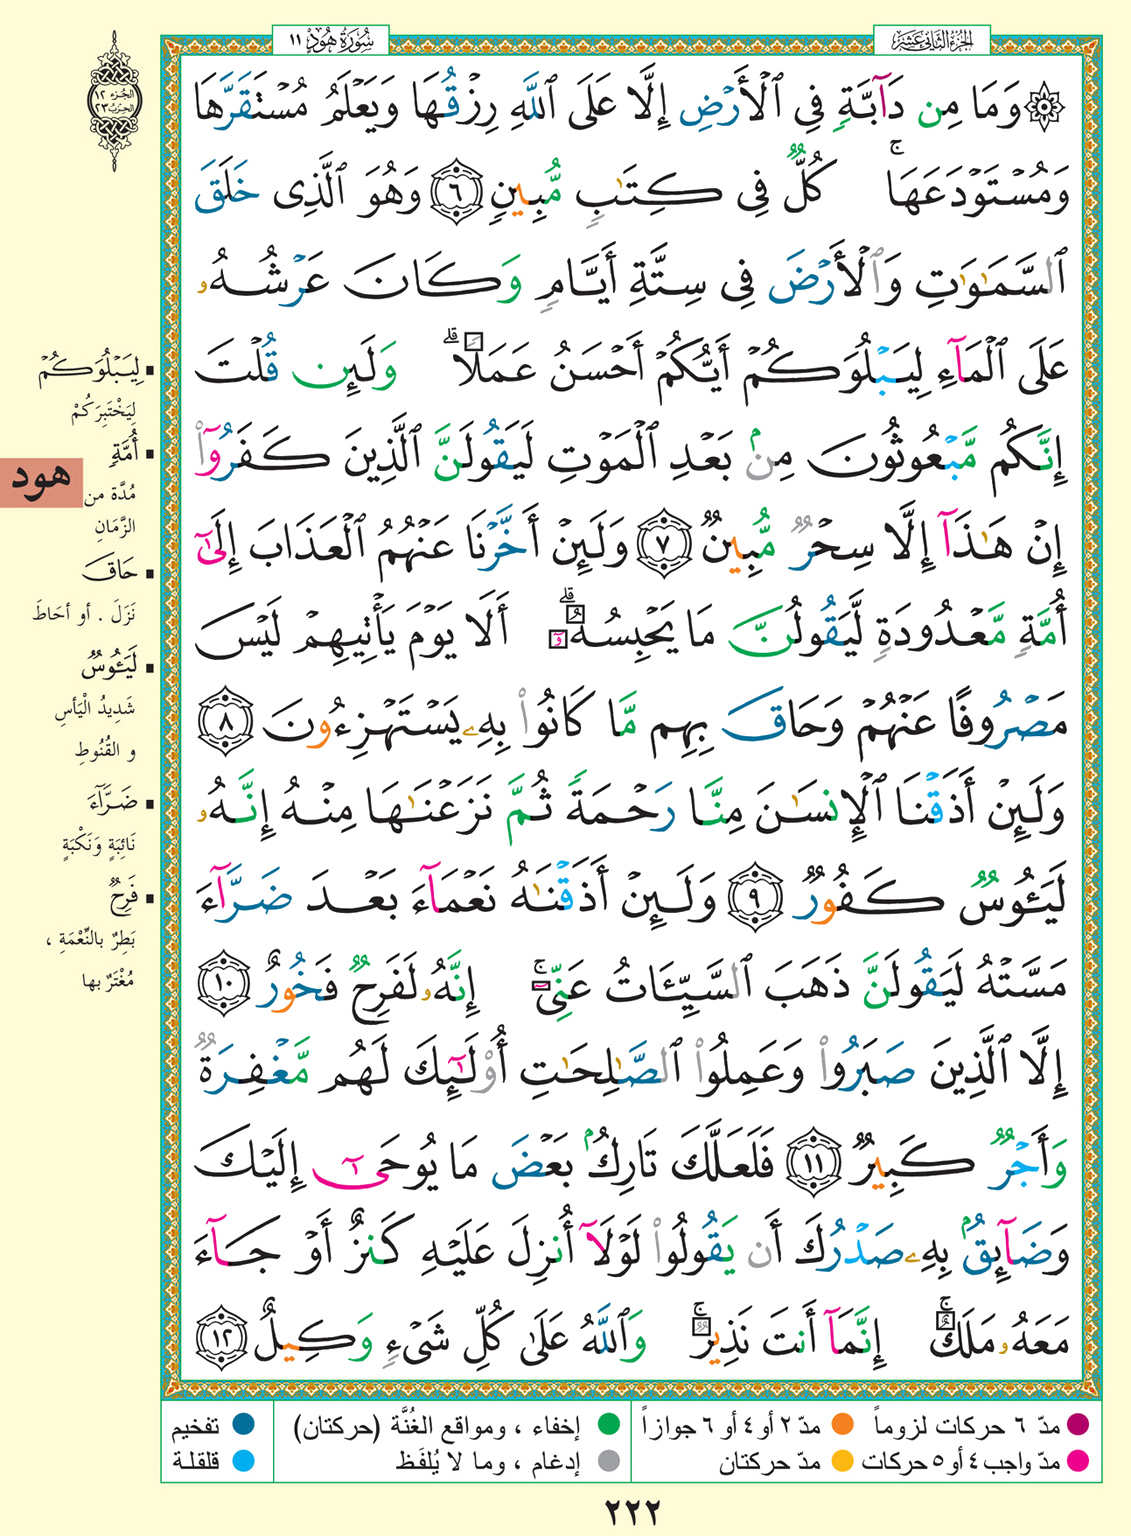 سُورَةُ هُودٍ ١١
الجزء الثاني عشر
الجزء ١٢
الحزب ٢٣
۞ وَمَا مِن دَآبَّةٍ فِي ٱلْأَرْضِ إِلَّا عَلَى ٱللَّهِ رِزْقُهَا وَيَعْلَمُ مُسْتَقَرَّهَا
وَمُسْتَوْدَعَهَا ۚ كُلٌّ فِي كِتَٰبٍ مُّبِينٍ ٦ وَهُوَ ٱلَّذِي خَلَقَ
ٱلسَّمَٰوَٰتِ وَٱلْأَرْضَ فِي سِتَّةِ أَيَّامٍ وَكَانَ عَرْشُهُۥ
عَلَى ٱلْمَآءِ لِيَبْلُوَكُمْ أَيُّكُمْ أَحْسَنُ عَمَلًا ۗ وَلَئِن قُلْتَ
إِنَّكُم مَّبْعُوثُونَ مِنۢ بَعْدِ ٱلْمَوْتِ لَيَقُولَنَّ ٱلَّذِينَ كَفَرُوٓا۟
إِنْ هَٰذَآ إِلَّا سِحْرٌ مُّبِينٌ ٧ وَلَئِنْ أَخَّرْنَا عَنْهُمُ ٱلْعَذَابَ إِلَىٰٓ
أُمَّةٍ مَّعْدُودَةٍ لَّيَقُولُنَّ مَا يَحْبِسُهُۥٓ ۗ أَلَا يَوْمَ يَأْتِيهِمْ لَيْسَ
مَصْرُوفًا عَنْهُمْ وَحَاقَ بِهِم مَّا كَانُوا۟ بِهِۦ يَسْتَهْزِءُونَ ٨
وَلَئِنْ أَذَقْنَا ٱلْإِنسَٰنَ مِنَّا رَحْمَةً ثُمَّ نَزَعْنَٰهَا مِنْهُ إِنَّهُۥ
لَيَـُٔوسٌ كَفُورٌ ٩ وَلَئِنْ أَذَقْنَٰهُ نَعْمَآءَ بَعْدَ ضَرَّآءَ
مَسَّتْهُ لَيَقُولَنَّ ذَهَبَ ٱلسَّيِّـَٔاتُ عَنِّيٓ ۚ إِنَّهُۥ لَفَرِحٌ فَخُورٌ ١٠
إِلَّا ٱلَّذِينَ صَبَرُوا۟ وَعَمِلُوا۟ ٱلصَّٰلِحَٰتِ أُو۟لَٰٓئِكَ لَهُم مَّغْفِرَةٌ
وَأَجْرٌ كَبِيرٌ ١١ فَلَعَلَّكَ تَارِكٌۢ بَعْضَ مَا يُوحَىٰٓ إِلَيْكَ
وَضَآئِقٌۢ بِهِۦ صَدْرُكَ أَن يَقُولُوا۟ لَوْلَآ أُنزِلَ عَلَيْهِ كَنزٌ أَوْ جَآءَ
مَعَهُۥ مَلَكٌ ۚ إِنَّمَآ أَنتَ نَذِيرٌ ۚ وَٱللَّهُ عَلَىٰ كُلِّ شَيْءٍ وَكِيلٌ ١٢
لِيَبْلُوَكُمْ
لِيَخْتَبِرَكُمْ
أُمَّةٍ
مُدَّة من
الزَّمَانِ
حَاقَ
نَزَلَ . أو أحَاطَ
لَيَـُٔوسٌ
شَدِيدُ الْيَأسِ
و القُنُوطِ
ضَرَّآءَ
نَائِبَةٍ وَنَكْبَةٍ
فَرِحٌ
بَطِرٌ بالنِّعْمَةِ ،
مُغْتَرٌ بها
هود
مدّ ٦ حركات لزوماً
مدّ ٢ أو ٤ أو ٦ جوازاً
إخفاء ، ومواقع الغُنَّة (حركتان)
تفخيم
مدّ واجب ٤ أو ٥ حركات
مدّ حركتان
إدغام ، وما لا يُلفَظ
قلقلة
٢٢٢